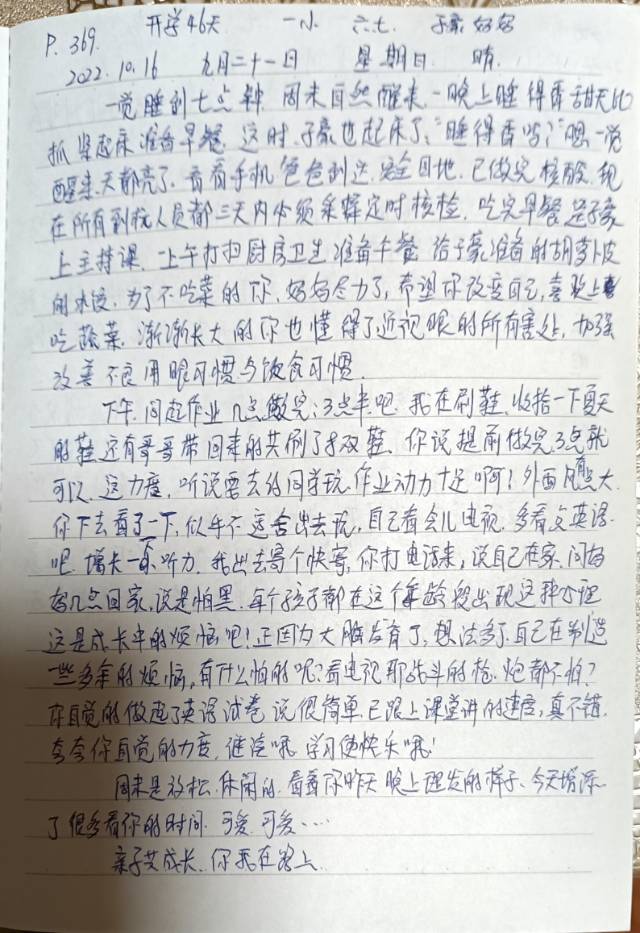 P.369 开学46天 一小 六.七. 子豪妈妈
2022.10.16 九月二十一日 星期日 晴.
一觉睡到七点钟 周末自然醒来.一晚上睡得香甜无比
抓紧起床准备早餐.这时.子豪也起床了,"睡得香吗?"嗯,一觉
醒来天都亮了.看看手机爸爸到达 目地.已做完核酸.现
在所有到杭人员都三天内必须采择定时核检.吃完早餐送子豪
上主持课.上午打扫厨房卫生准备午餐 给子豪准备的胡萝卜皮
的水饺.为了不吃菜的你.妈妈尽力了,希望你改变自己,喜欢上
吃蔬菜.渐渐长大的你也懂得了近视眼的所有害处,加强
改善不良用眼习惯与饮食习惯.
下午.问起作业几点做完:3点半吧.我在刷鞋.收拾一下夏天
的鞋还有哥哥带回来的共刷了8双鞋.你说提前做完3点就
可以.这力度.听说要去约同学玩.作业动力十足啊!外面风大
你下去看了一下.似乎不适合出去玩,自己看会儿电视.多看文英语
吧.增长一下听力.我出去寄个快寄,你打电话来,说自己在家.问妈
妈几点回家,说是怕黑.每个孩子都在这个年龄段出现这种心理
这是成长中的烦恼吧!正因为大脑发育了,想法多了.自己在制造
一些多余的烦恼,有什么怕的呢?看电视那战斗的枪.炮都不怕?
自觉的做起了英语试卷 说很简单.已跟上课堂讲的速度,真不错.
夸夸你自觉的力度.谁说哦.学习使快乐哦!
周末是放松.休闲的.看看你昨天晚上理发的样子.今天增添
了很多看你的时间.可爱.可爱…
亲子共成长.你我在路上